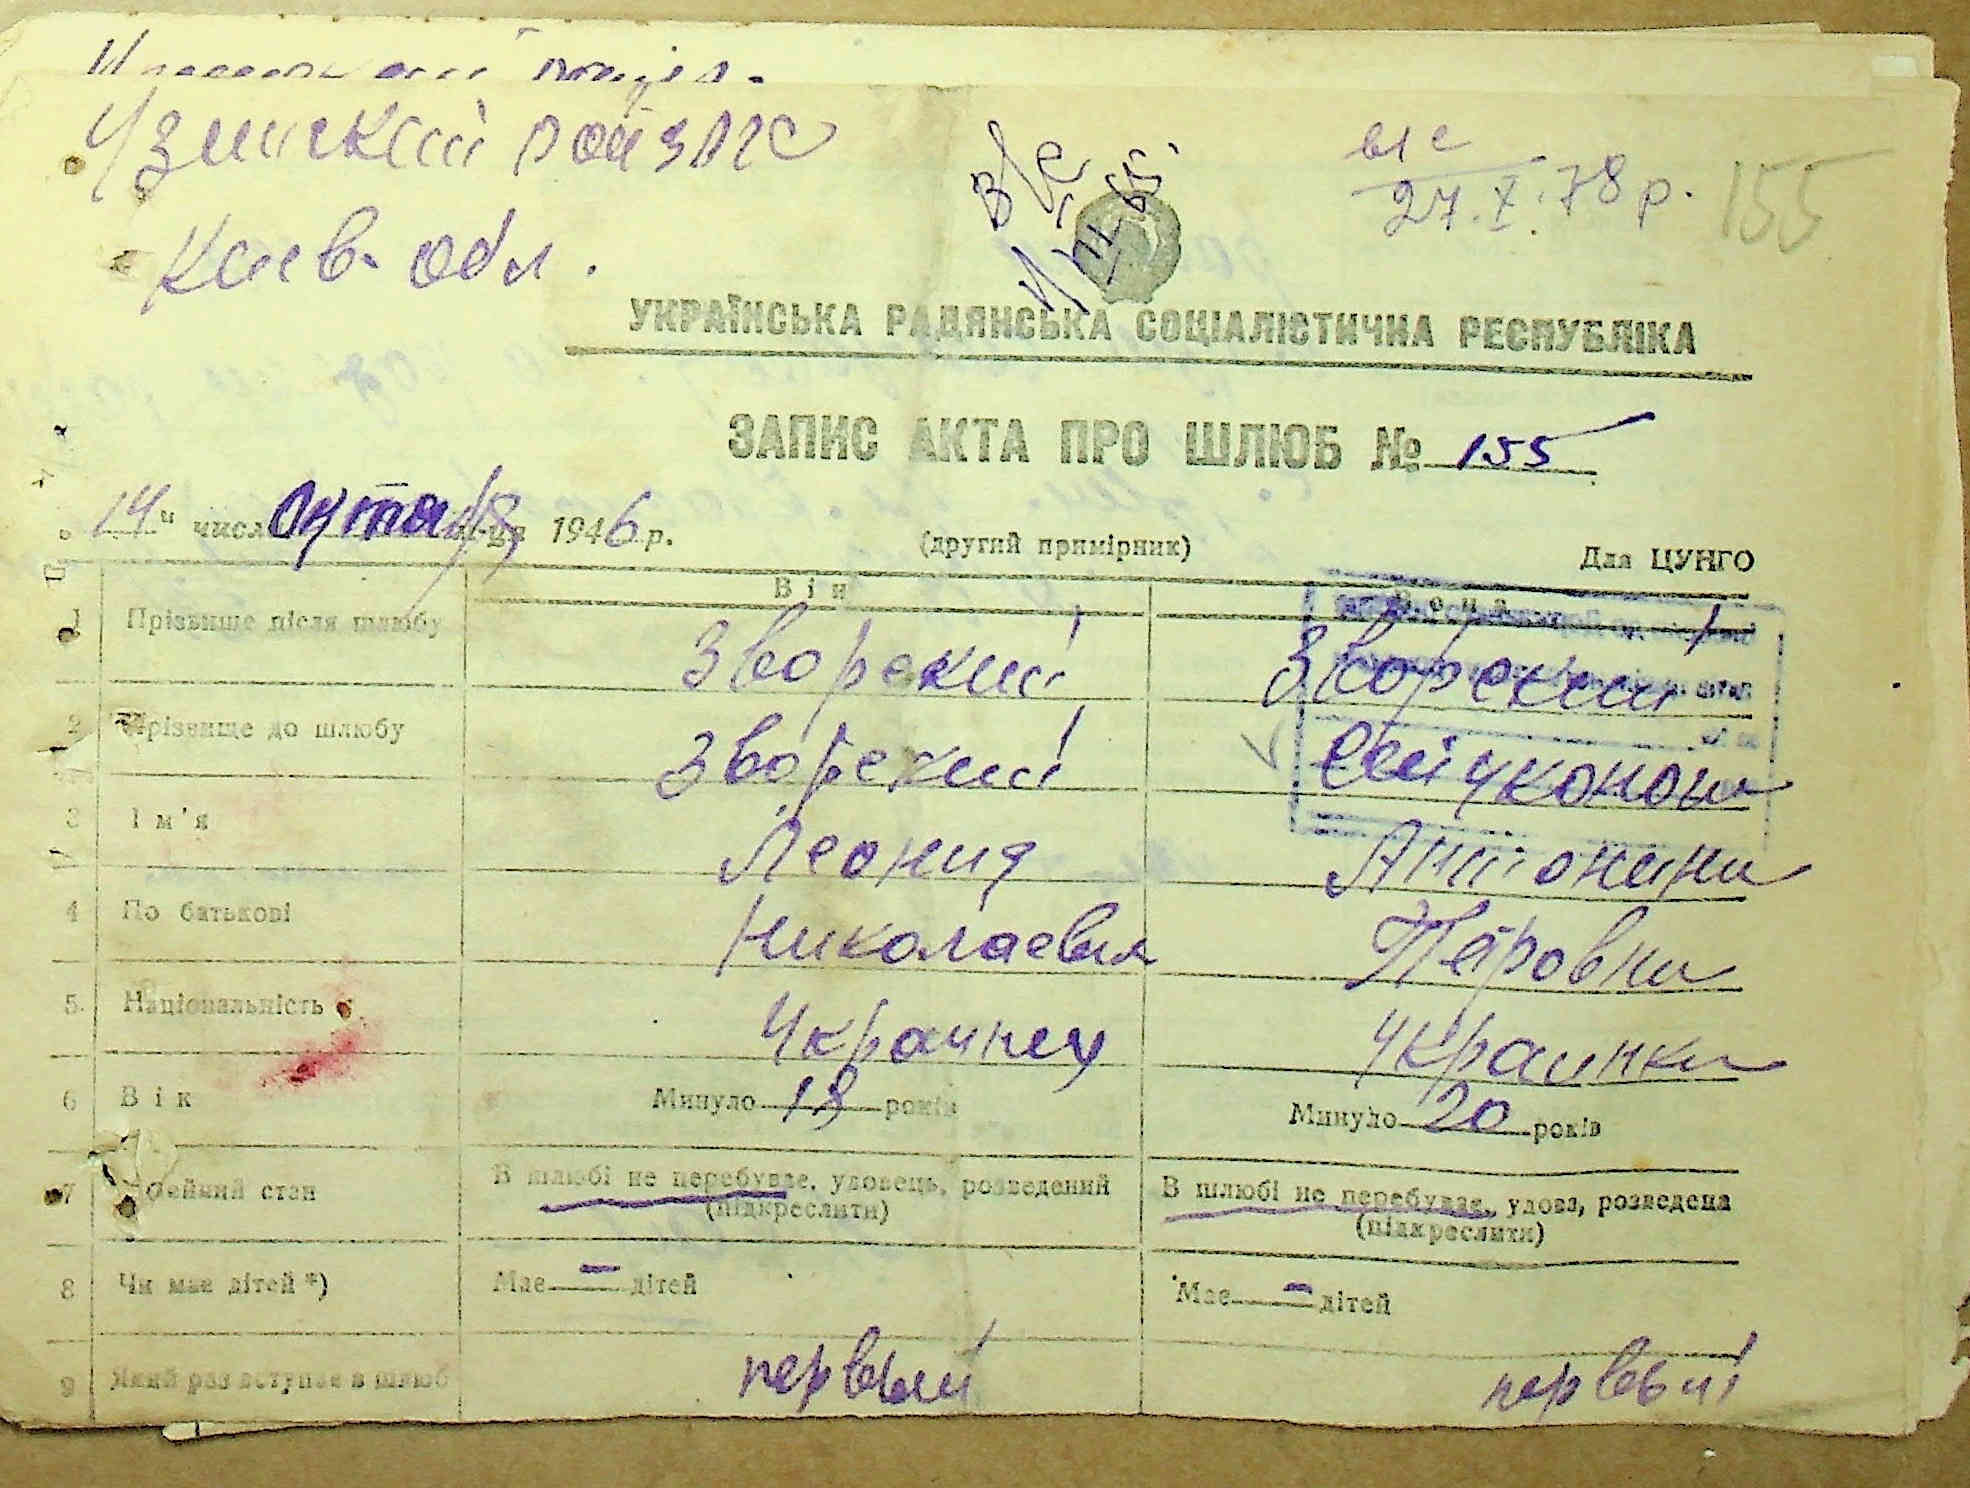 Узинский рай загс
Киев. обл.
в/с
27.X.78 р.
155
УКРАЇНСЬКА РАДЯНСЬКА СОЦІАЛІСТИЧНА РЕСПУБЛІКА
ЗАПИС АКТА ПРО ШЛЮБ № 155
14 " числа октября м-ця 1946 р.
(другий примірник)
Для ЦУНГО
Він Вона
1 Прізвище після шлюбу Зворский Зворский
2 Прізвище до шлюбу Зворский
3 Ім'я Леонид Антонина
4 По батькові Николаевич Петровна
5. Національність Украинец Украинка
6 Вік Минуло 18 років Минуло 20 років
7 Сімейний стан В шлюбі не перебуває, удовець, розведений (підкреслити) В шлюбі не перебуває, удова, розведена (підкреслити)
8 Чи має дітей *) Має — дітей Має — дітей
9 Який раз вступає в шлюб первый первый